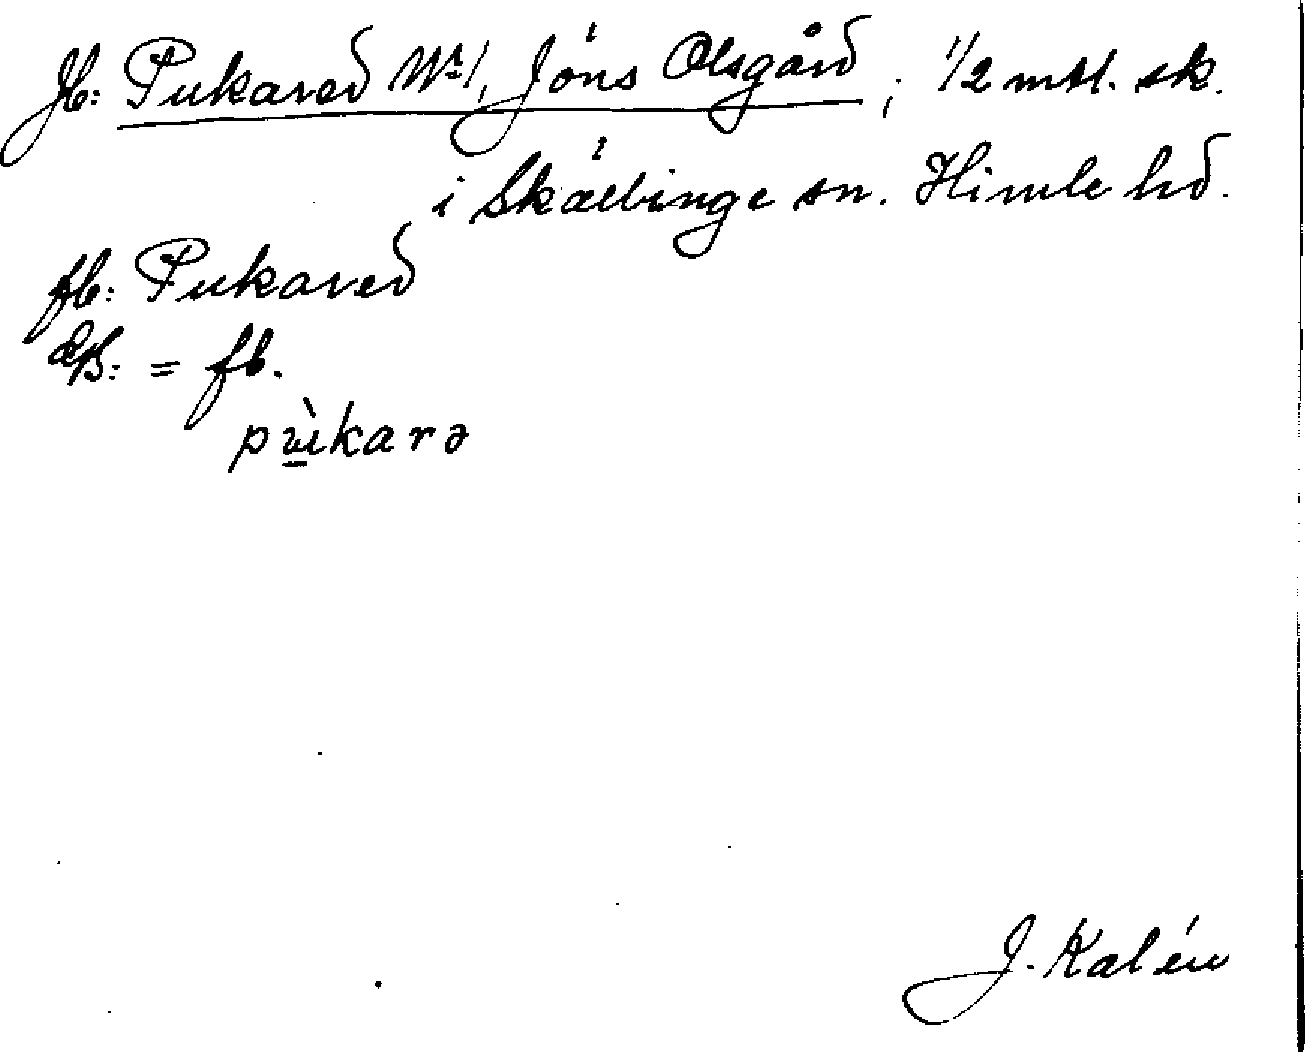 Jb: Pukared Nr 1, Jöns Olsgård; 1/2 mtl. sk.
i Skällinge sn. Himle hd.
fb: Pukared
dps: = fb.
pùkarə
J. Kalén